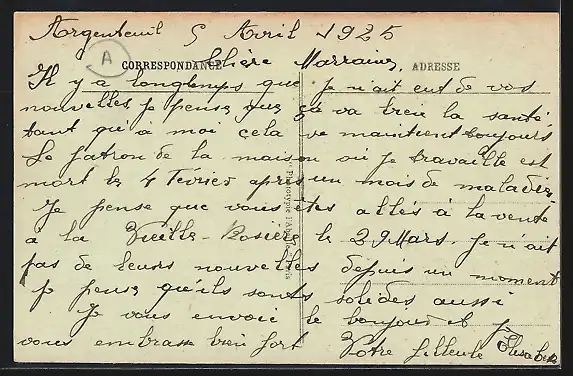 Argenteuil 5 Avril 1925
A
CORRESPONDANCE Chère Marraine, ADRESSE
Il y a longtemps que je n'ait eut de vos
nouvelles je pense que ça va bien la santé
tant qu'a moi cela ve maintient toujours
Le patron de la maison où je travaille est
mort le 4 Février après un mois de maladie
Je pense que vous êtes allés à la vente
à la Vieille-Rosière le 29 Mars. Je n'ait
pas de leurs nouvelles depuis un moment
je pense qu'ils sont solides aussi
Je vous envoie le bonjour et je
vous embrasse bien fort Votre filleule
Phototypie l'Abeille Paris